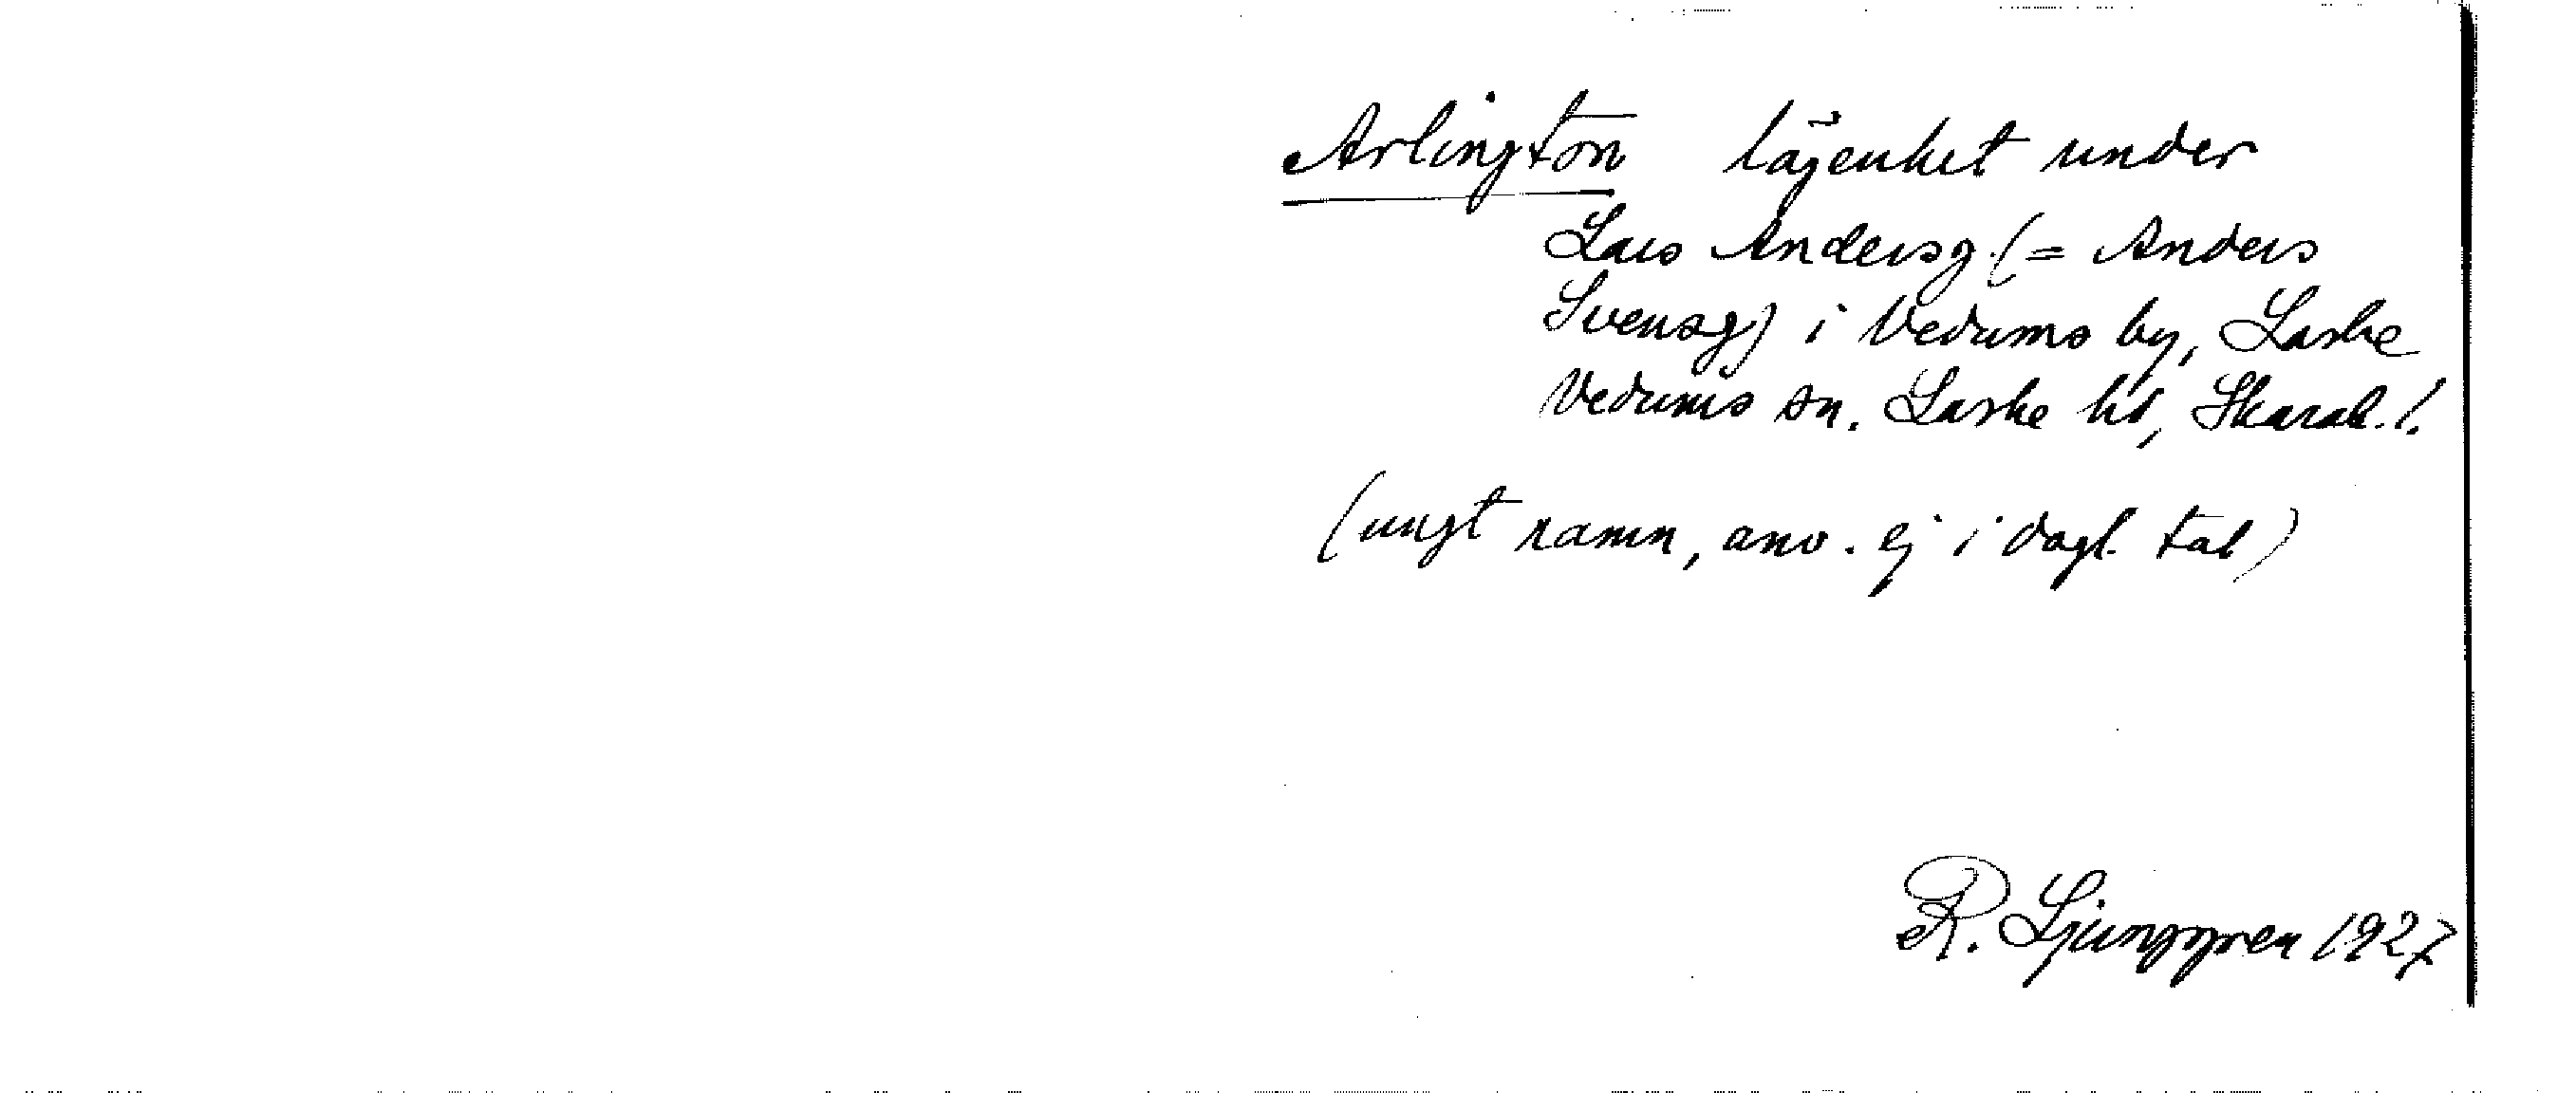 Arlington lägenhet under
Lars Andersg. (= Anders
Svensg) i Vedums by, Laske
Vedums sn. Laske hd, Skarab. l.
(ungt namn, anv. ej i dagl. tal)
R. Ljunggren 1927